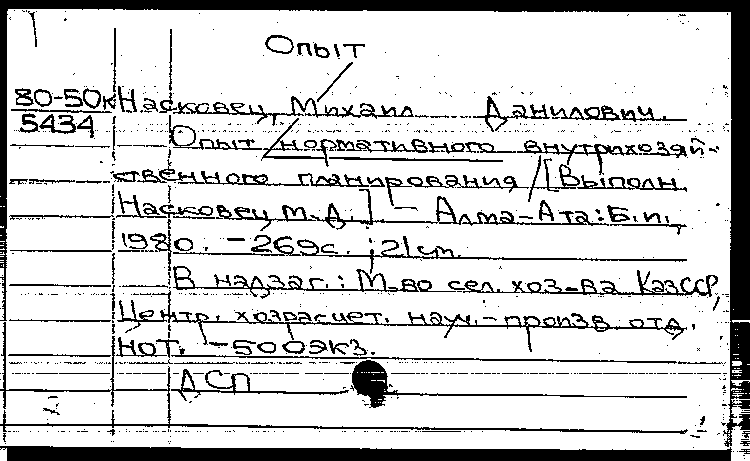 Опыт
80-50к Насковец, Михаил Данилович.
5434 Опыт нормативного внутрихозяй-
ственного планирования / [Выполн.
Насковец М. Д.] – Алма-Ата: Б.и.,
1980. – 269с. ; 21 см.
В надзаг.: М-во сел. хоз-ва КазССР,
Центр. хозрасчет. науч.-произв. отд.
НОТ. – 500экз.
ДСП